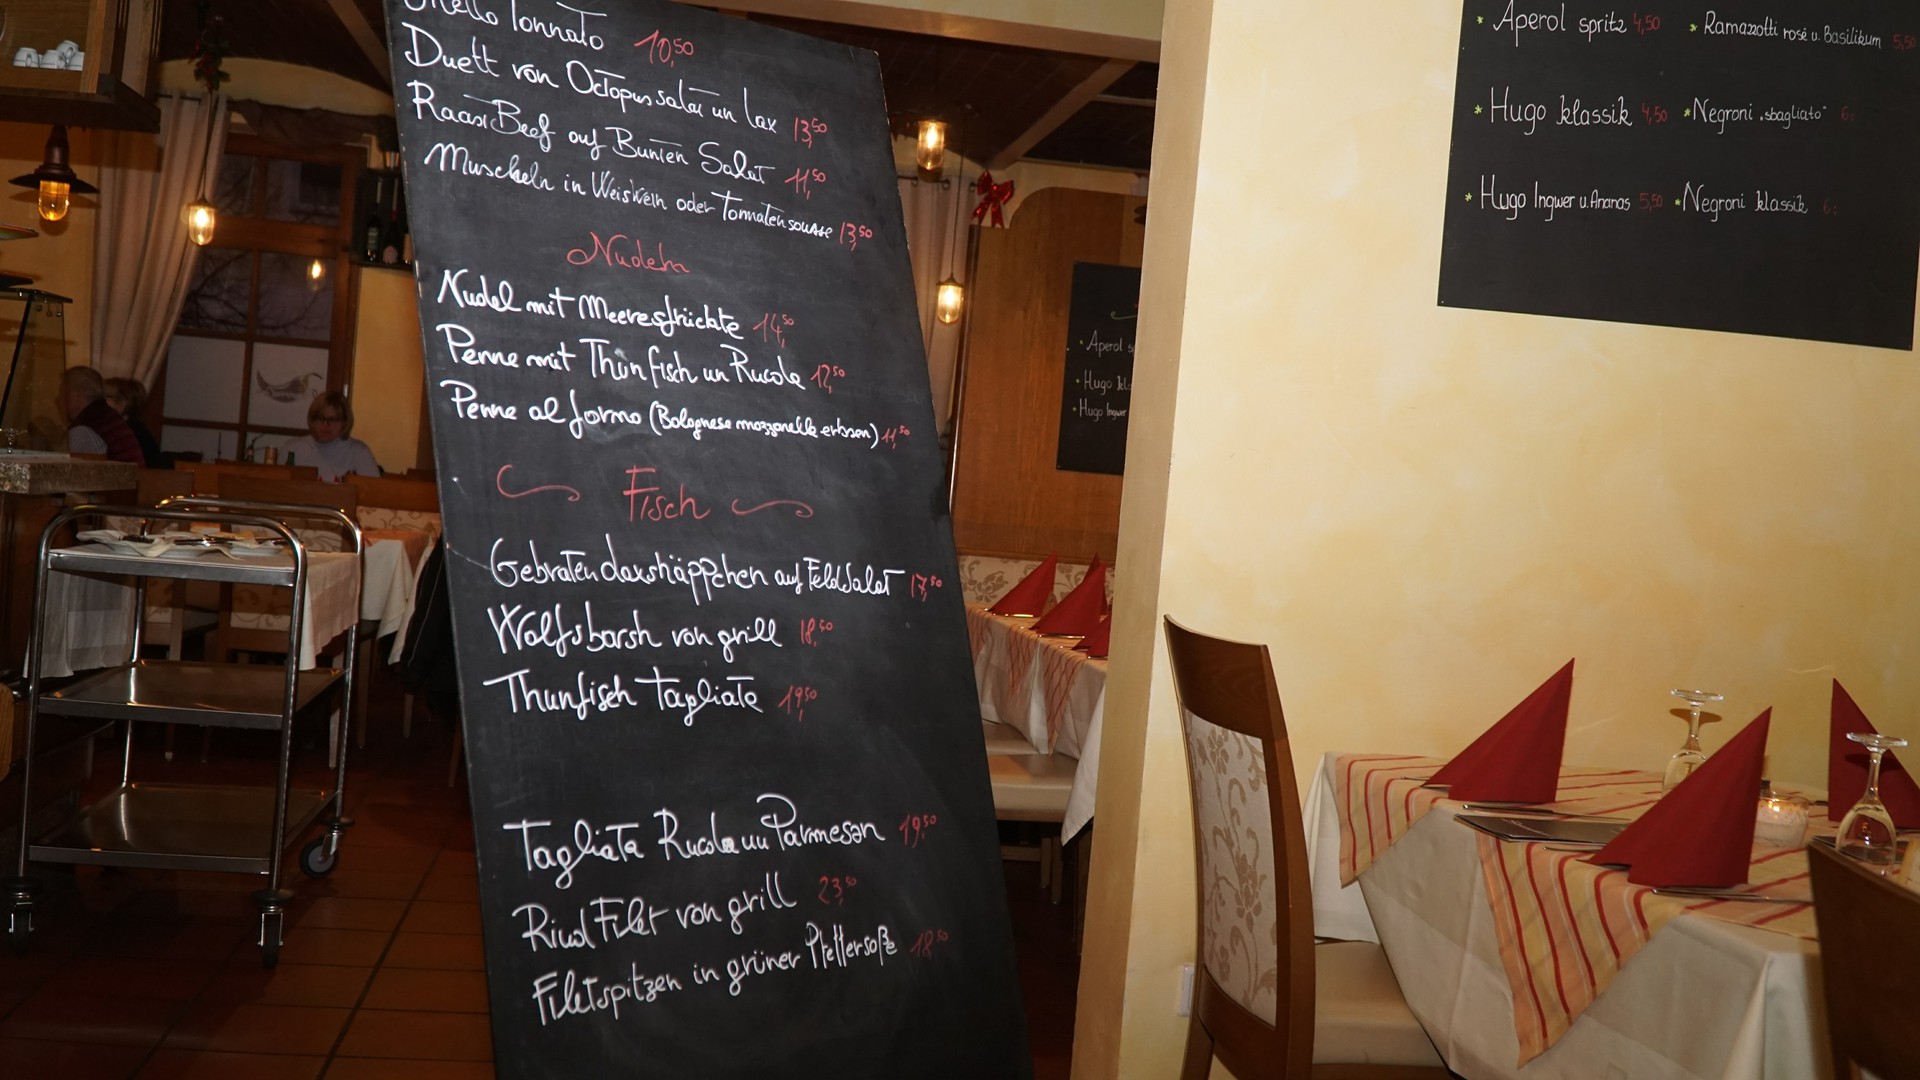 Tonnato 10,50
Duett von Octopussalat un Lax 13,50
RoastBeef auf Bunten Salat 11,50
Muscheln in Weiswein oder Tomatensouße 13,50
Nudeln
Nudel mit Meeresfrüchte 14,50
Penne mit Thunfisch un Rucola 12,50
Penne al forno (Bolognese mozzarella erbsen) 11,50
Fisch
Gebraten daxshäppchen auf FeldSalat 17,50
Wolfsbarsh von grill 18,50
Thunfisch Tagliata 19,50
Tagliata Rucola un Parmesan 19,50
Rind Filet von grill 23,50
Filetspitzen in grüner Pfeffersoße 18,50
* Aperol spritz 4,50 * Ramazzotti rosé u. Basilikum 5,50
* Hugo klassik 4,50 * Negroni „sbagliato" 6:
* Hugo Ingwer u. Ananas 5,50 * Negroni klassik 6:
* Aperol s
* Hugo kla
* Hugo Ingwer